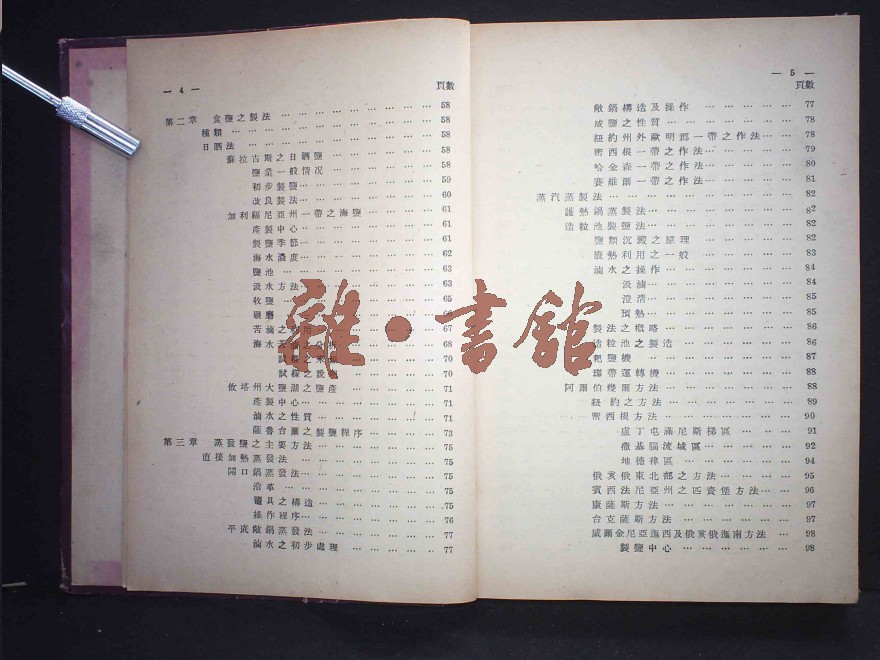 — 4 —
頁數
第二章 食鹽之製法 … 58
種類 … 58
日晒法 … 58
蘇拉古斯之日晒鹽 … 58
鹽業一般情況 … 58
初步製鹽 … 59
改良製法 … 60
加利福尼亞州一帶之海鹽 … 61
產製中心 … 61
製鹽季節 … 61
海水濃度 … 62
鹽池 … 63
汲水方法 … 63
收鹽
碾磨
苦滷之利用 … 67
海水苦滷之分析 … 68
試樣之來源 … 70
試樣之說 … 70
攸塔州大鹽湖之鹽產 … 71
產製中心 … 71
滷水之性質 … 71
薩魯台爾之製鹽程序 … 73
第三章 蒸發鹽之主要方法 … 75
直接加熱蒸發法 … 75
開口鍋蒸發法 … 75
沿革 … 75
竈具之構造 … 75
操作程序 … 76
平底敞鍋蒸發法 … 77
滷水之初步處理 … 77
— 5 —
頁數
敞鍋構造及操作 … 77
成鹽之性質 … 78
紐約州外歐明郡一帶之作法 … 78
密西根一帶之作法 … 79
哈金森一帶之作法 … 80
賽維爾一帶之作法 … 81
蒸汽蒸製法 … 82
護熱鍋蒸製法 … 82
造粒池製鹽法 … 82
鹽類沉澱之原理 … 82
廢熱利用之一般 … 83
滷水之操作 … 84
汲滷 … 84
澄清 … 85
預熱 … 85
製法之概略 … 86
造粒池之製造 … 86
耙鹽機 … 87
環帶運轉機 … 88
阿爾伯幾爾方法 … 88
紐約之方法 … 89
密西根方法 … 90
盧丁屯滿尼斯梯區 … 91
撒基腦流域區 … 92
地德律區 … 94
俄亥俄東北部之方法 … 95
賓西法尼亞州之匹資堡方法 … 96
康薩斯方法 … 97
台克薩斯方法 … 97
威爾金尼亞迤西及俄亥俄迤南方法 … 98
製鹽中心 … 98
雜·書館